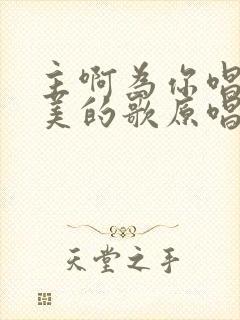 主啊为你唱
美的歌原唱
天堂之手